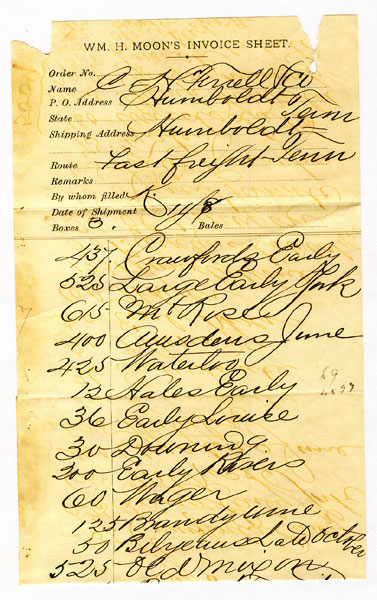 WM. H. MOON'S INVOICE SHEET.
Order No.
Name C H Ferrell & Co
P. O. Address Humboldt
State Tenn
Shipping Address Humboldt
Route Fast freight Tenn
Remarks
By whom filled
Date of Shipment
Boxes 3. Bales
437 Crawfords Early
525 Large Early York
615 Mt Rose
400 Amsdens June
425 Waterloo
12 Hales Early
36 Early Louise
30 Downing
200 Early Rivers
60 Wager
125 Brandywine
50 Bilyeaus Late October
525 Old Mixon